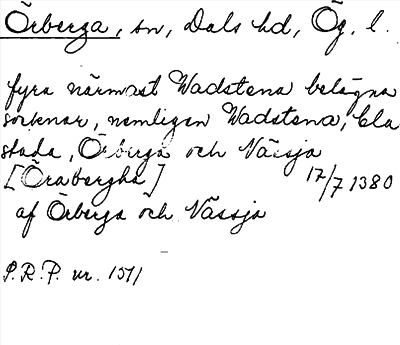 Örberga, sn, Dals hd, Ög. l.
fyra närmast Wadstena belägna
socknar, nemligen Wadstena, Cla
stada, Örberga och Nässja
[Örabergha] 17/7 1380
af Örberga och Nässja
P.R.P. nr. 1511